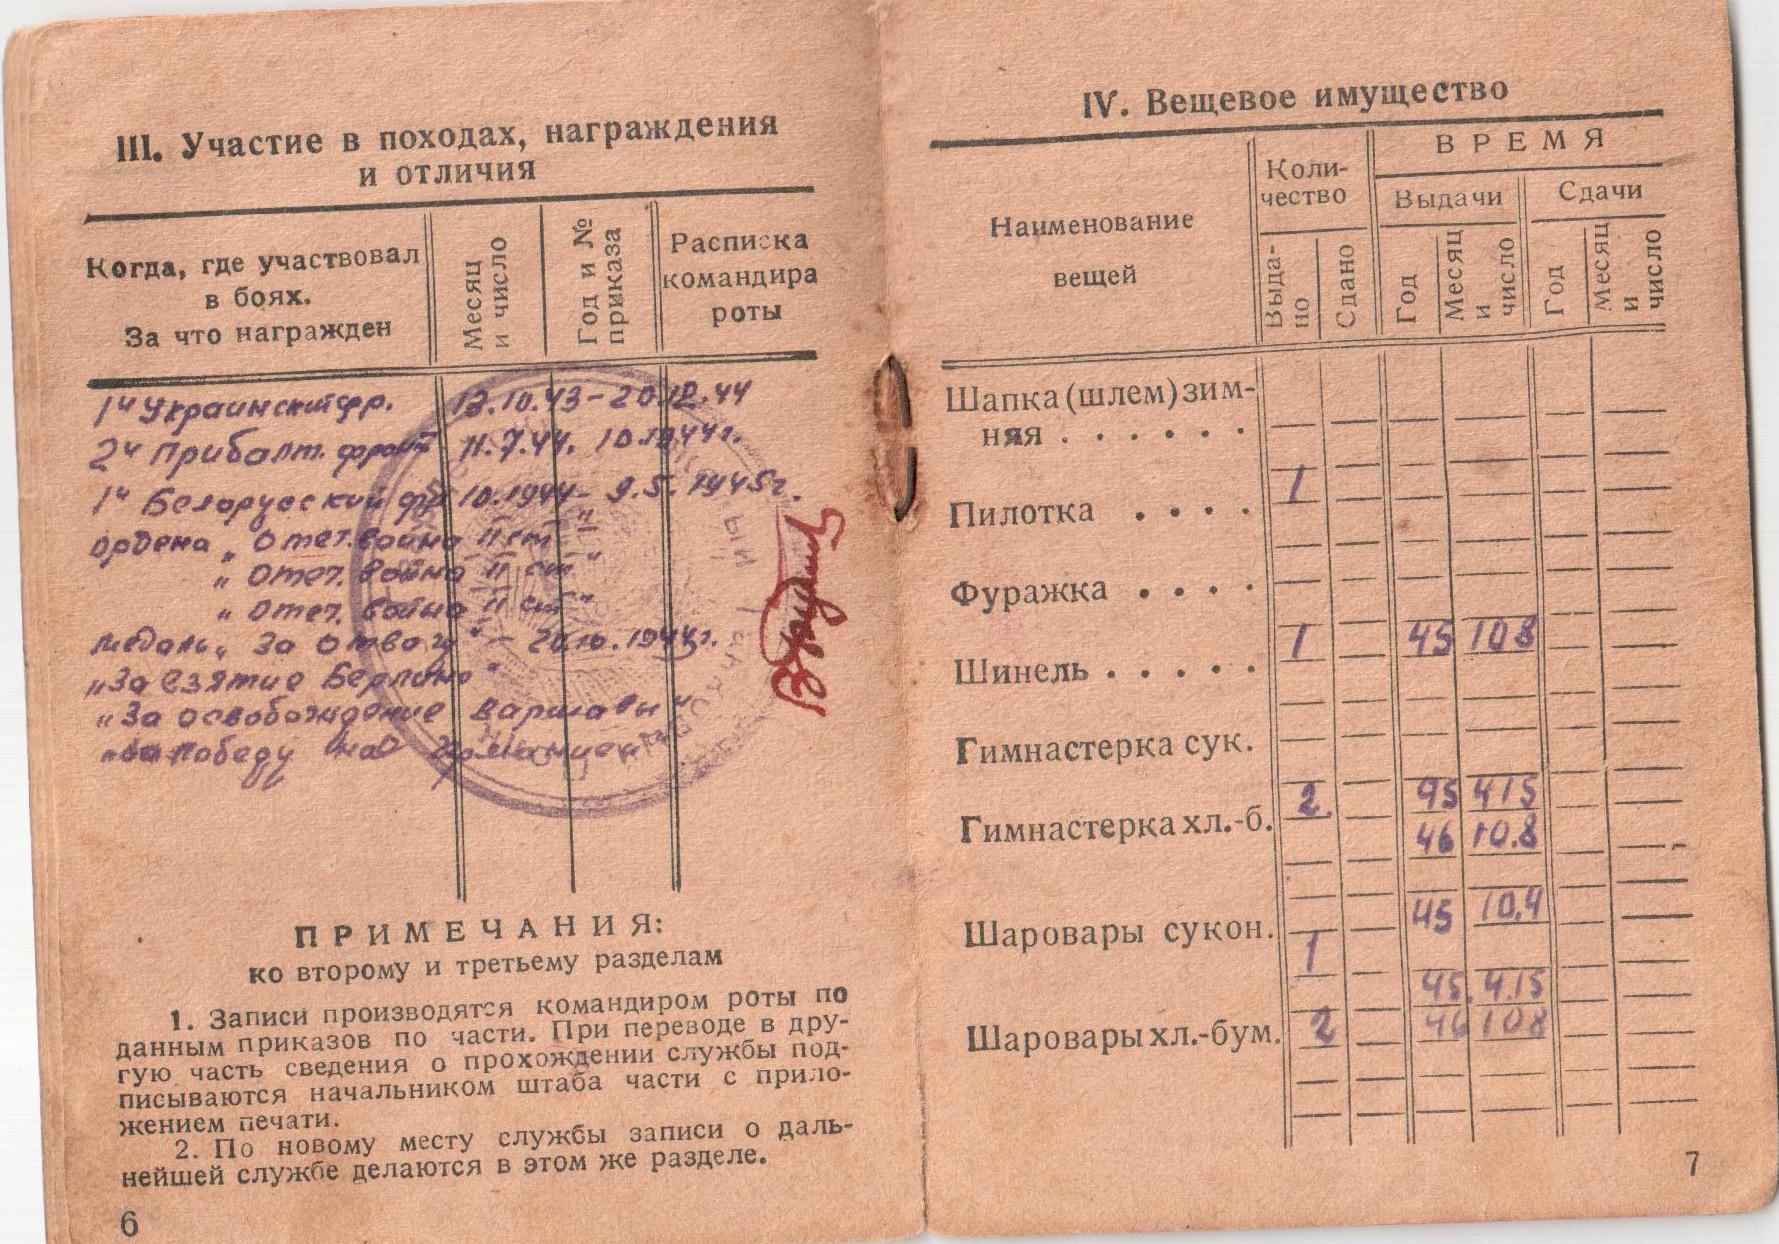 III. Участие в походах, награждения
и отличия
Когда, где участвовал
в боях.
За что награжден
Месяц
и число
Год и №
приказа
Расписка
командира
роты
1й Украинский фр. 13.10.43 – 20.12.44
2й Прибалт. фронт 11.7.44. 10.1944г.
1й Белорусский фр 10.1944 – 9.5.1945г.
ордена „Отеч. война II ст"
„Отеч. война II ст"
„Отеч. война II ст"
медаль „За отвагу" – 20.10.1944г.
„За взятие Берлина"
„За освобождение Варшавы"
„За победу над Германией"
ПРИМЕЧАНИЯ:
ко второму и третьему разделам
1. Записи производятся командиром роты по
данным приказов по части. При переводе в дру-
гую часть сведения о прохождении службы под-
писываются начальником штаба части с прило-
жением печати.
2. По новому месту службы записи о даль-
нейшей службе делаются в этом же разделе.
6
IV. Вещевое имущество
Наименование
вещей
Коли-
чество
ВРЕМЯ
Выдачи
Сдачи
Выда-
но
Сдано
Год
Месяц
и
число
Год
Месяц
и
число
Шапка (шлем) зим-
няя . . . . . .
Пилотка . . . . 1
Фуражка . . . .
Шинель . . . . . 1 45 10 8
Гимнастерка сук.
Гимнастерка хл.-б. 2. 45 4 15
46 10.8
Шаровары сукон. 1 45 10.4
45. 4.15
Шаровары хл.-бум. 2 46 10 8
7